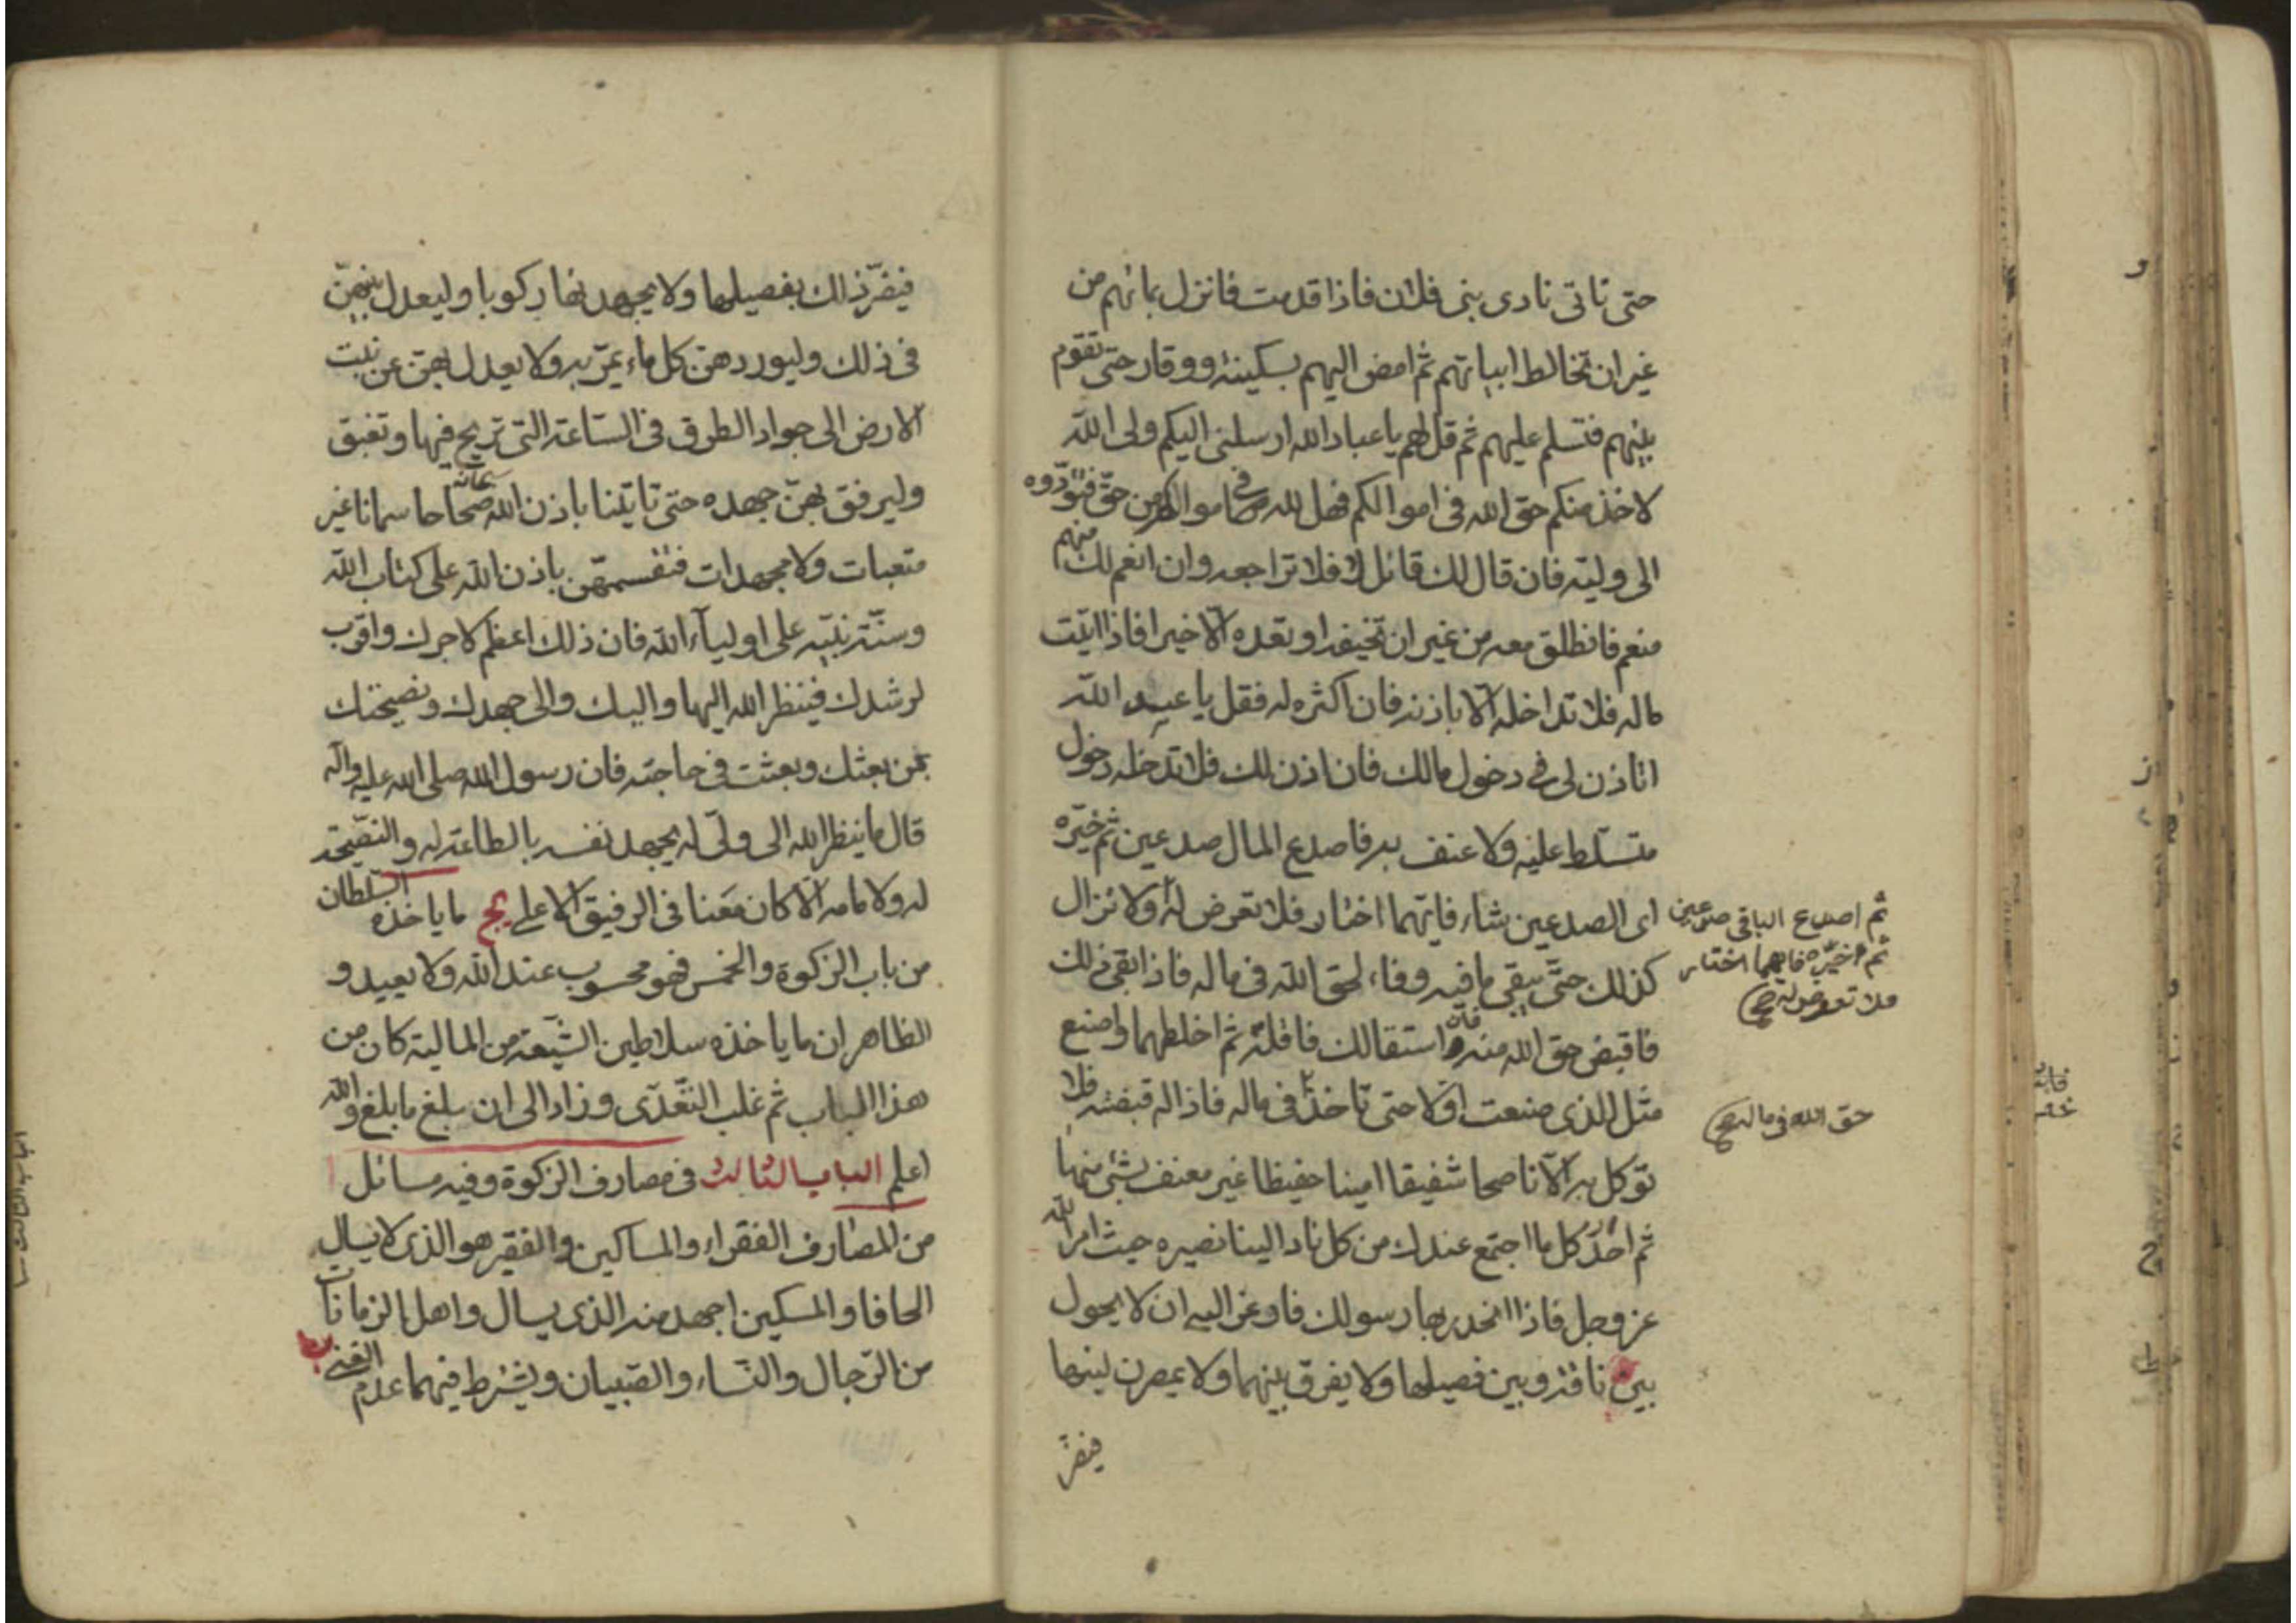 حتى تاتى نادى بنى فلان فاذا قدمت فانزل بمائهم من
غير ان تخالط ابياتهم ثم امض اليهم بسكينة ووقار حتى تقوم
بينهم فتسلم عليهم ثم قل لهم يا عباد الله ارسلنى اليكم ولى الله
لاخذ منكم حق الله فى اموالكم فهل لله فى اموالكم من حق فتؤدّوه
الى وليه فان قال لك قائل لا فلا تراجعه وان انعم لك منهم
منعم فانطلق معه من غير ان تخيفه او تعده الّا خيرا فاذا اتيت
ماله فلا تداخله الّا باذنه فان اكثره له فقل يا عبد الله
اتاذن لى فى دخول مالك فان اذن لك فلا تدخله دخول
متسلّط عليه ولا عنف به فاصدع المال صدعين ثم خيّره
اى الصدعين شاء فايّهما اختار فلا تعرض له ولا تزال
ثم اصدع الباقى صدعين
ثم خيّره فايهما اختار
فلا تعرض له صح
كذلك حتّى يبقى ما فيه وفاء لحق الله فى ماله فاذا بقى ذلك
فاقبض حق الله منه فان استقالك فاقله ثم اخلطهما واصنع
مثل الذى صنعت اوّلا حتى تاخذ فى ماله فاذا له قبضته فلا
حق الله فى ماله صح
توكل به الّا ناصحا شفيقا امينا حفيظا غير معنف بشئ منها
ثم احدر كل ما اجتمع عندك من كل ناد الينا نصيره حيث امر الله
عز وجل فاذا انحدر بها رسولك فاوعز اليه ان لا يحول
بين ناقة وبين فصيلها ولا يفرق بينهما ولا يمصرن لبنها
فيضرّ
فيضرّ ذلك بفصيلها ولا يجهد بها ركوبا وليعدل بينهنّ
فى ذلك وليوردهن كل ماء يمرّ به ولا يعدل بهنّ عن نبت
الارض الى جواد الطرق فى الساعة التى تريح فيها وتغبق
وليرفق بهنّ جهده حتى تاتينا باذن الله سبحانه صحاحا سمانا غير
متعبات ولا مجهدات فنقسمهن باذن الله على كتاب الله
وسنّة نبيّه على اولياء الله فان ذلك اعظم لاجرك واقرب
لرشدك فينظر الله اليها واليك والى جهدك ونصيحتك
لمن بعثك وبعثت فى حاجته فان رسول الله صلى الله عليه وآله
قال ما ينظر الله الى ولىّ له يجهد نفسه بالطاعة له والنصيحة
له ولامامه الّا كان معنا فى الرفيق الاعلى يج ما ياخذه السلطان
من باب الزكوة والخمس فهو محسوب عند الله ولا يعيد و
الظاهر ان ما ياخذه سلاطين الشيعة من المالية كان من
هذا الباب ثم غلب التعدّى وزاد الى ان بلغ ما بلغ والله
اعلم الباب الثالث فى مصارف الزكوة وفيه مسائل ا
من المصارف الفقراء والمساكين والفقير هو الذى لا يسال
الحافا والمسكين اجهد منه الذى يسال واهل الزمانات
من الرّجال والنّساء والصّبيان ويشترط فيهما عدم الغنى ب